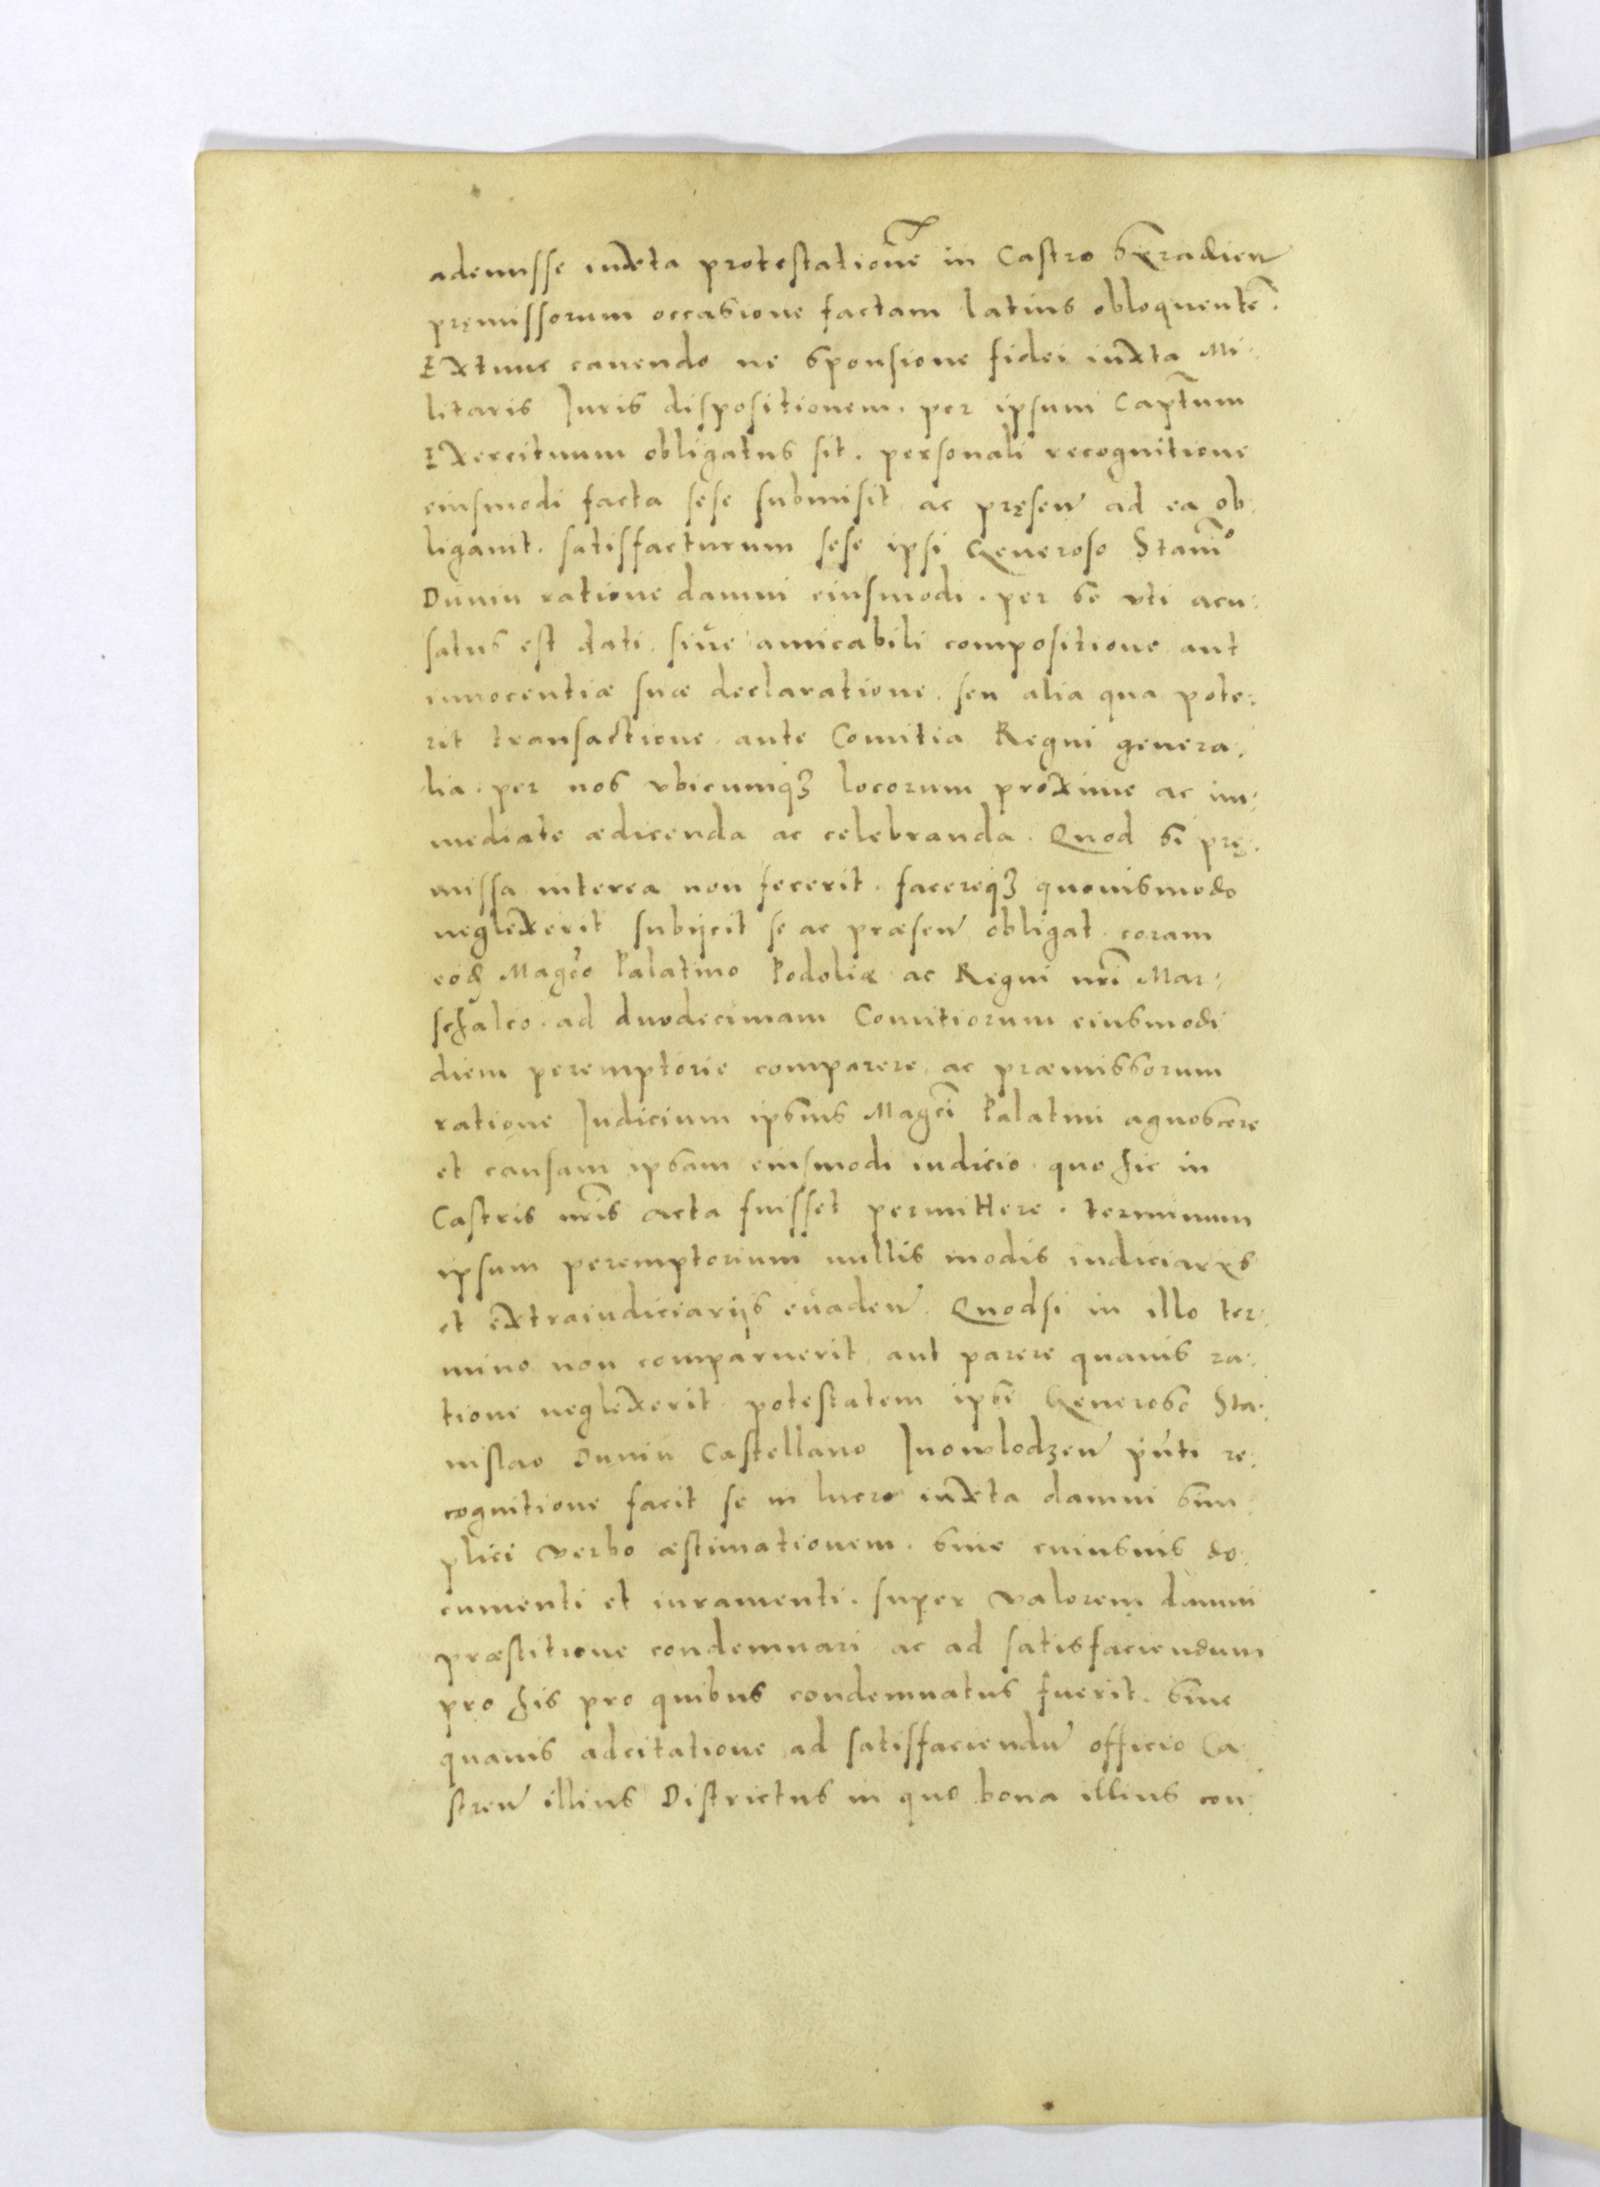 ademisse iuxta protestationē in Castro Syradien̄
pręmissorum occasione factam latius obloquentē.
Extunc cauendo ne sponsione fidei iuxta Mi:
litaris Iuris dispositionem. per ipsum Captūm
Exercituum obligatus sit. personali recognitione
eiusmodi facta sese submisit ac pręsen̄ ad ea ob:
ligauit. satisfacturum sese ipsi Generoso Stanīo
Dunin ratione damni eiusmodi. per se vti acu:
satus est dati. siue amicabili compositione aut
innocentiæ suæ declaratione. seu alia qua pote:
rit transactione. ante Comitia Regni genera:
lia. per nos vbicunqꝫ locorum proxime ac im:
mediate ædicenda ac celebranda. Quod si prę:
missa interea non fecerit. facereqꝫ quouismodo
neglexerit subijcit se ac præsen̄ obligat. coram
eodꝫ Magco Palatino Podoliæ ac Regni nri Mar:
schalco. ad duodecimam Comitiorum eiusmodi
diem peremptorie comparere. ac præmissorum
ratione Iudicium ipsius Magci Palatini agnoscere
et causam ipsam eiusmodi iudicio. quo hic in
Castris nris acta fuisset permittere. terminum
ipsum peremptorium nullis modis iudiciarijs
et extraiudiciarijs euaden̄. Quodsi in illo ter:
mino non comparuerit. aut parere quauis ra:
tione neglexerit. potestatem ipsi Generoso Sta:
nislao Dunin Castellano Inowlodzen̄ pn̄ti re:
cognitione facit se in lucro iuxta damni sim:
plici verbo æstimationem. sine cuiusuis do:
cumenti et iuramenti. super valorem damni
præstitione condemnari ac ad satisfaciendum
pro his pro quibus condemnatus fuerit. sine
quauis adcitatione ad satisfaciendū officio Ca:
stren̄ illius Districtus in quo bona illius con: